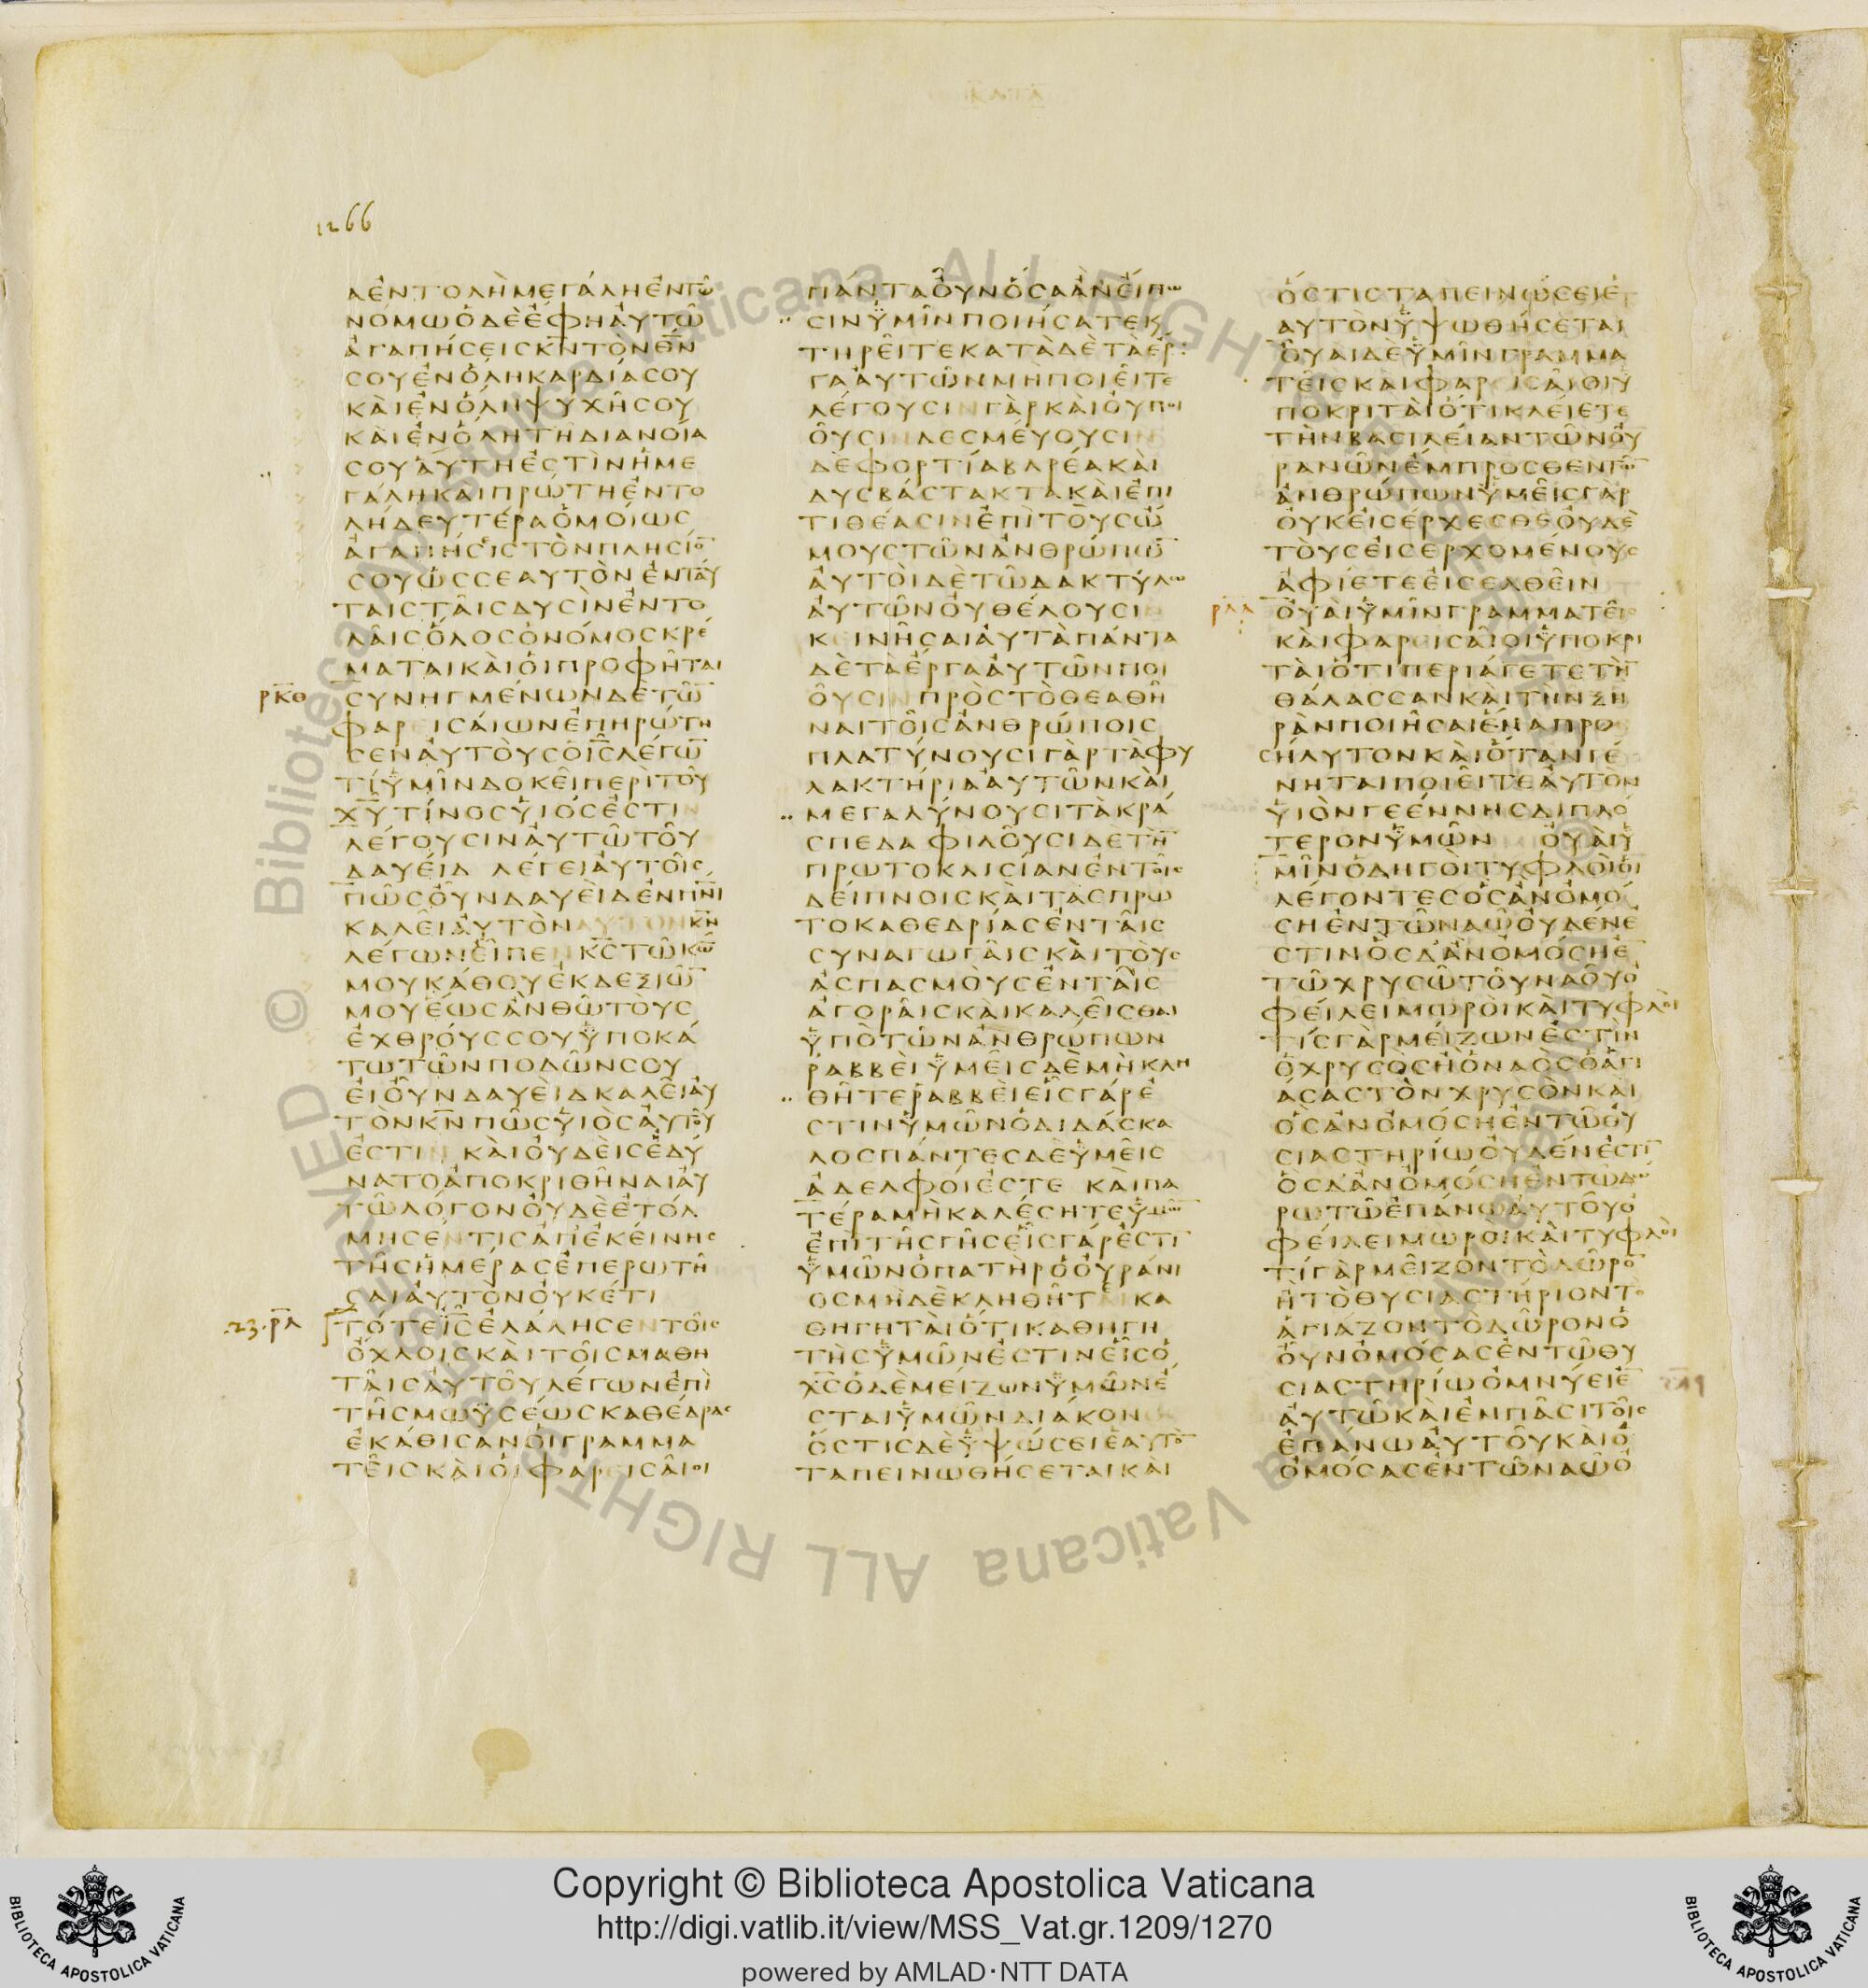 ΚΑΤΑ
1266
ΛΕΝΤΟΛΗΜΕΓΑΛΗΕΝΤΩ
ΝΟΜΩΟΔΕΕΦΗΑΥΤΩ
ΑΓΑΠΗΣΕΙΣΚΝΤΟΝΘΝ
ΣΟΥΕΝΟΛΗΚΑΡΔΙΑΣΟΥ
ΚΑΙΕΝΟΛΗΨΥΧΗΣΟΥ
ΚΑΙΕΝΟΛΗΤΗΔΙΑΝΟΙΑ
ΣΟΥΑΥΤΗΕΣΤΙΝΗΜΕ
ΓΑΛΗΚΑΙΠΡΩΤΗΕΝΤΟ
ΛΗΔΕΥΤΕΡΑΟΜΟΙΩΣ
ΑΓΑΠΗΣΕΙΣΤΟΝΠΛΗΣΙΟ
ΣΟΥΩΣΣΕΑΥΤΟΝΕΝΤΑΥ
ΤΑΙΣΤΑΙΣΔΥΣΙΝΕΝΤΟ
ΛΑΙΣΟΛΟΣΟΝΟΜΟΣΚΡΕ
ΜΑΤΑΙΚΑΙΟΙΠΡΟΦΗΤΑΙ
ΡΚΘ ΣΥΝΗΓΜΕΝΩΝΔΕΤΩ
ΦΑΡΕΙΣΑΙΩΝΕΠΗΡΩΤΗ
ΣΕΝΑΥΤΟΥΣΟΙΣΛΕΓΩ
ΤΙΫΜΙΝΔΟΚΕΙΠΕΡΙΤΟΥ
ΧΥΤΙΝΟΣΫΙΟΣΕΣΤΙΝ
ΛΕΓΟΥΣΙΝΑΥΤΩΤΟΥ
ΔΑΥΕΙΔ ΛΕΓΕΙΑΥΤΟΙΣ
ΠΩΣΟΥΝΔΑΥΕΙΔΕΝΠΝΙ
ΚΑΛΕΙΑΥΤΟΝΑΥΤΟΝΚΝ
ΛΕΓΩΝΕΙΠΕΝ ΚΣΤΩΚΩ
ΜΟΥΚΑΘΟΥΕΚΔΕΞΙΩ
ΜΟΥΕΩΣΑΝΘΩΤΟΥΣ
ΕΧΘΡΟΥΣΣΟΥΫΠΟΚΑ
ΤΩΤΩΝΠΟΔΩΝΣΟΥ
ΕΙΟΥΝΔΑΥΕΙΔΚΑΛΕΙΑΥ
ΤΟΝΚΝΠΩΣΫΙΟΣΑΥΤΟΥ
ΕΣΤΙΝ ΚΑΙΟΥΔΕΙΣΕΔΥ
ΝΑΤΟΑΠΟΚΡΙΘΗΝΑΙΑΥ
ΤΩΛΟΓΟΝΟΥΔΕΕΤΟΛ
ΜΗΣΕΝΤΙΣΑΠΕΚΕΙΝΗΣ
ΤΗΣΗΜΕΡΑΣΕΠΕΡΩΤΗ
ΣΑΙΑΥΤΟΝΟΥΚΕΤΙ
.23. ΡΛ ΤΟΤΕΙΣΕΛΑΛΗΣΕΝΤΟΙΣ
ΟΧΛΟΙΣΚΑΙΤΟΙΣΜΑΘΗ
ΤΑΙΣΑΥΤΟΥΛΕΓΩΝΕΠΙ
ΤΗΣΜΩΫΣΕΩΣΚΑΘΕΔΡΑΣ
ΕΚΑΘΙΣΑΝΟΙΓΡΑΜΜΑ
ΤΕΙΣΚΑΙΟΙΦΑΡΕΙΣΑΙΟΙ
ΠΑΝΤΑΟΥΝΟΣΑΑΝΕΙΠΩ
ΣΙΝΫΜΙΝΠΟΙΗΣΑΤΕΚ
ΤΗΡΕΙΤΕΚΑΤΑΔΕΤΑΕΡ
ΓΑΑΥΤΩΝΜΗΠΟΙΕΙΤΕ
ΛΕΓΟΥΣΙΝΓΑΡΚΑΙΟΥΠΟΙ
ΟΥΣΙΝΔΕΣΜΕΥΟΥΣΙΝ
ΔΕΦΟΡΤΙΑΒΑΡΕΑΚΑΙ
ΔΥΣΒΑΣΤΑΚΤΑΚΑΙΕΠΙ
ΤΙΘΕΑΣΙΝΕΠΙΤΟΥΣΩ
ΜΟΥΣΤΩΝΑΝΘΡΩΠΩ
ΑΥΤΟΙΔΕΤΩΔΑΚΤΥΛΩ
ΑΥΤΩΝΟΥΘΕΛΟΥΣΙΝ
ΚΕΙΝΗΣΑΙΑΥΤΑΠΑΝΤΑ
ΔΕΤΑΕΡΓΑΑΥΤΩΝΠΟΙ
ΟΥΣΙΝΠΡΟΣΤΟΘΕΑΘΗ
ΝΑΙΤΟΙΣΑΝΘΡΩΠΟΙΣ
ΠΛΑΤΥΝΟΥΣΙΓΑΡΤΑΦΥ
ΛΑΚΤΗΡΙΑΑΥΤΩΝΚΑΙ
ΜΕΓΑΛΥΝΟΥΣΙΤΑΚΡΑ
ΣΠΕΔΑΦΙΛΟΥΣΙΔΕΤΗ
ΠΡΩΤΟΚΛΙΣΙΑΝΕΝΤΟΙΣ
ΔΕΙΠΝΟΙΣΚΑΙΤΑΣΠΡΩ
ΤΟΚΑΘΕΔΡΙΑΣΕΝΤΑΙΣ
ΣΥΝΑΓΩΓΑΙΣΚΑΙΤΟΥΣ
ΑΣΠΑΣΜΟΥΣΕΝΤΑΙΣ
ΑΓΟΡΑΙΣΚΑΙΚΑΛΕΙΣΘΑΙ
ΫΠΟΤΩΝΑΝΘΡΩΠΩΝ
ΡΑΒΒΕΙΫΜΕΙΣΔΕΜΗΚΛΗ
ΘΗΤΕΡΑΒΒΕΙΕΙΣΓΑΡΕ
ΣΤΙΝΫΜΩΝΟΔΙΔΑΣΚΑ
ΛΟΣΠΑΝΤΕΣΔΕΫΜΕΙΣ
ΑΔΕΛΦΟΙΕΣΤΕ ΚΑΙΠΑ
ΤΕΡΑΜΗΚΑΛΕΣΗΤΕΫΜΩ
ΕΠΙΤΗΣΓΗΣΕΙΣΓΑΡΕΣΤΙ
ΫΜΩΝΟΠΑΤΗΡΟΟΥΡΑΝΙ
ΟΣΜΗΔΕΚΛΗΘΗΤΑΙΚΑ
ΘΗΓΗΤΑΙΟΤΙΚΑΘΗΓΗ
ΤΗΣΫΜΩΝΕΣΤΙΝΕΙΣΟ
ΧΣΟΔΕΜΕΙΖΩΝΫΜΩΝΕ
ΣΤΑΙΫΜΩΝΔΙΑΚΟΝΟΣ
ΟΣΤΙΣΔΕΫΨΩΣΕΙΕΑΥΤΟ
ΤΑΠΕΙΝΩΘΗΣΕΤΑΙΚΑΙ
ΟΣΤΙΣΤΑΠΕΙΝΩΣΕΙΕ
ΑΥΤΟΝΫΨΩΘΗΣΕΤΑΙ
ΟΥΑΙΔΕΫΜΙΝΓΡΑΜΜΑ
ΤΕΙΣΚΑΙΦΑΡΕΙΣΑΙΟΙΫ
ΠΟΚΡΙΤΑΙΟΤΙΚΛΕΙΕΤΕ
ΤΗΝΒΑΣΙΛΕΙΑΝΤΩΝΟΥ
ΡΑΝΩΝΕΜΠΡΟΣΘΕΝΤΩ
ΑΝΘΡΩΠΩΝΫΜΕΙΣΓΑΡ
ΟΥΚΕΙΣΕΡΧΕΣΘΕΟΥΔΕ
ΤΟΥΣΕΙΣΕΡΧΟΜΕΝΟΥΣ
ΑΦΙΕΤΕΕΙΣΕΛΘΕΙΝ
ΡΛΑ ΟΥΑΙΫΜΙΝΓΡΑΜΜΑΤΕΙΣ
ΚΑΙΦΑΡΕΙΣΑΙΟΙΫΠΟΚΡΙ
ΤΑΙΟΤΙΠΕΡΙΑΓΕΤΕΤΗ
ΘΑΛΑΣΣΑΝΚΑΙΤΗΝΞΗ
ΡΑΝΠΟΙΗΣΑΙΕΝΑΠΡΟ
ΣΗΛΥΤΟΝΚΑΙΟΤΑΝΓΕ
ΝΗΤΑΙΠΟΙΕΙΤΕΑΥΤΟΝ
ΫΙΟΝΓΕΕΝΝΗΣΔΙΠΛΟ
ΤΕΡΟΝΫΜΩΝ ΟΥΑΙΫ
ΜΙΝΟΔΗΓΟΙΤΥΦΛΟΙΟΙ
ΛΕΓΟΝΤΕΣΟΣΑΝΟΜΟ
ΣΗΕΝΤΩΝΑΩΟΥΔΕΝΕ
ΣΤΙΝΟΣΔΑΝΟΜΟΣΗΕ
ΤΩΧΡΥΣΩΤΟΥΝΑΟΥΟ
ΦΕΙΛΕΙΜΩΡΟΙΚΑΙΤΥΦΛΟΙ
ΤΙΣΓΑΡΜΕΙΖΩΝΕΣΤΙΝ
ΟΧΡΥΣΟΣΗΟΝΑΟΣΟΑΓΙ
ΑΣΑΣΤΟΝΧΡΥΣΟΝΚΑΙ
ΟΣΑΝΟΜΟΣΗΕΝΤΩΘΥ
ΣΙΑΣΤΗΡΙΩΟΥΔΕΝΕΣΤΙ
ΟΣΔΑΝΟΜΟΣΗΕΝΤΩΔΩ
ΡΩΤΩΕΠΑΝΩΑΥΤΟΥΟ
ΦΕΙΛΕΙΜΩΡΟΙΚΑΙΤΥΦΛΟΙ
ΤΙΓΑΡΜΕΙΖΟΝΤΟΔΩΡΟ
ΗΤΟΘΥΣΙΑΣΤΗΡΙΟΝΤΟ
ΑΓΙΑΖΟΝΤΟΔΩΡΟΝΟ
ΟΥΝΟΜΟΣΑΣΕΝΤΩΘΥ
ΣΙΑΣΤΗΡΙΩΟΜΝΥΕΙΕ
ΑΥΤΩΚΑΙΕΝΠΑΣΙΤΟΙΣ
ΕΠΑΝΩΑΥΤΟΥΚΑΙΟ
ΟΜΟΣΑΣΕΝΤΩΝΑΩΟ
Copyright © Biblioteca Apostolica Vaticana
http://digi.vatlib.it/view/MSS_Vat.gr.1209/1270
powered by AMLAD·NTT DATA
BIBLIOTECA APOSTOLICA VATICANA
BIBLIOTECA APOSTOLICA VATICANA